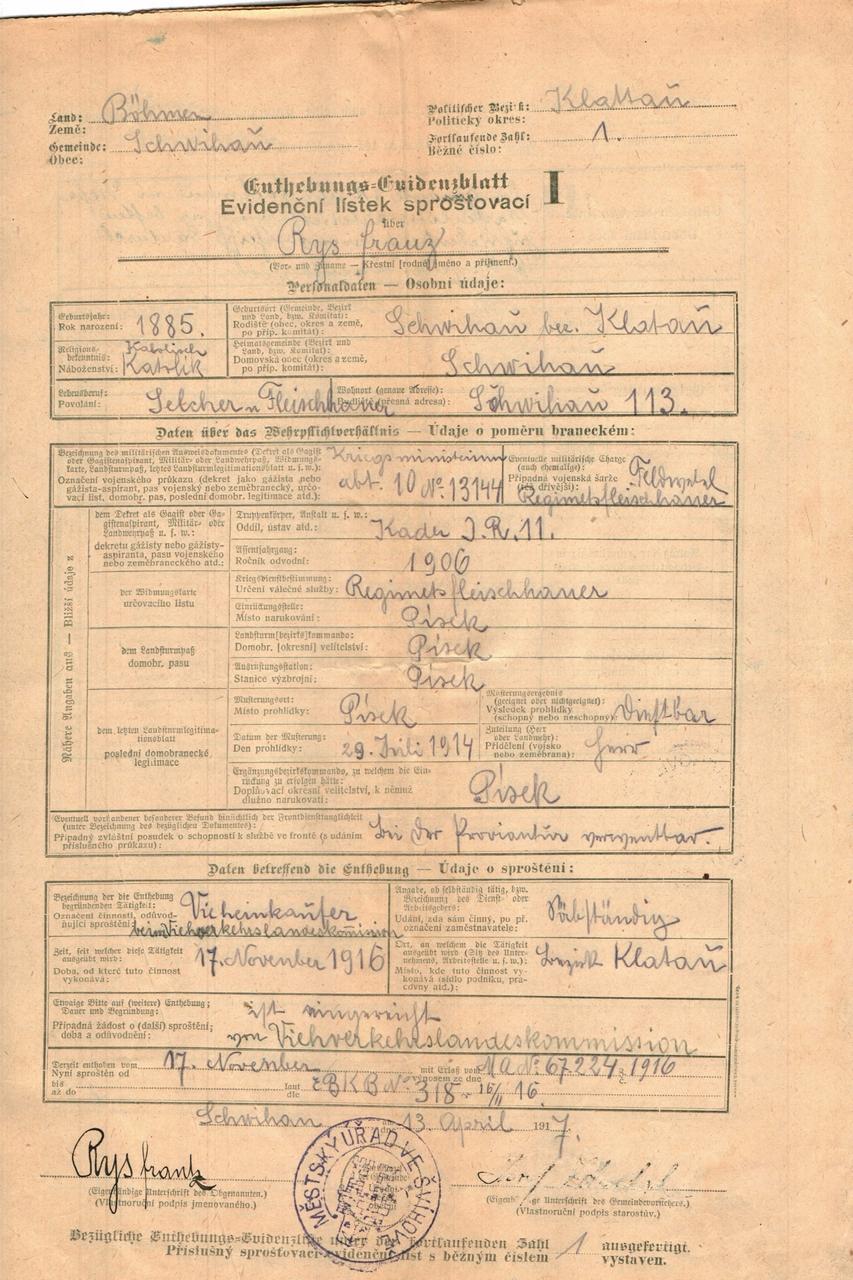 Land: Böhmen
Země:
Politischer Bezirk: Klattau
Politický okres:
Gemeinde: Schwihau
Obec:
Fortlaufende Zahl: 1.
Běžné číslo:
Enthebungs-Evidenzblatt I
Evidenční lístek sprošťovací
über
Rys franz
(Vor- und Zuname — Křestní [rodné] jméno a příjmení.)
Personaldaten — Osobní údaje:
Geburtsjahr:
Rok narození: 1885.
Geburtsort (Gemeinde, Bezirk
und Land, bzw. Komitat):
Rodiště (obec, okres a země,
po příp. komitát):
Schwihau bez. Klatau
Religions-
bekenntnis: Katolisch
Náboženství: Katolík
Heimatsgemeinde (Bezirk und
Land, bzw. Komitat):
Domovská obec (okres a země,
po příp. komitát):
Schwihau
Lebensberuf:
Povolání: Selcher u Fleischhauer
Wohnort (genaue Adresse):
Bydliště (přesná adresa): Schwihau 113.
Daten über das Wehrpflichtverhältnis — Údaje o poměru braneckém:
Bezeichnung des militärischen Ausweisdokumentes (Dekret als Gagist
oder Gagistenaspirant, Militär- oder Landwehrpaß, Widmungs-
karte, Landsturmpaß, letztes Landsturmlegitimationsblatt u. s. w.):
Označení vojenského průkazu (dekret jako gážista nebo
gážista-aspirant, pas vojenský nebo zeměbranecký, určo-
vací list, domobr. pas, poslední domobr. legitimace atd.):
Kriegsministerium
abt. 10 No. 13144
Eventuelle militärische Charge
(auch ehemalige):
Případná vojenská šarže
(též dřívější):
Feldwebel
Regimetsfleischhauer
Nähere Angaben aus — Bližší údaje z
dem Dekret als Gagist oder Ga-
gistenaspirant, Militär- oder
Landwehrpaß u. s. w.:
dekretu gážisty nebo gážisty-
aspiranta, pasu vojenského
nebo zeměbraneckého atd.:
Truppenkörper, Anstalt u. s. w.:
Oddíl, ústav atd.: Kader I.R. 11.
Assentjahrgang:
Ročník odvodní: 1906
der Widmungskarte
určovacího listu
Kriegsdienstbestimmung:
Určení válečné služby: Regimetsfleischhauer
Einrückungsstelle:
Místo narukování: Písek
dem Landsturmpaß
domobr. pasu
Landsturm[bezirks]kommando:
Domobr. [okresní] velitelství: Písek
Ausrüstungsstation:
Stanice výzbrojní: Písek
dem letzten Landsturmlegitima-
tionsblatt
poslední domobranecké
legitimace
Musterungsort:
Místo prohlídky: Písek
Musterungsergebnis
(geeignet oder nichtgeeignet):
Výsledek prohlídky
(schopný nebo neschopný): Dienstbar
Datum der Musterung:
Den prohlídky: 29. Juli 1914
Zuteilung (Heer
oder Landwehr):
Přidělení (vojsko
nebo zeměbrana): Herr
Ergänzungsbezirkskommando, zu welchem die Ein-
rückung zu erfolgen hätte:
Doplňovací okresní velitelství, k němuž
dlužno narukovati: Písek
Eventuell vorhandener besonderer Befund hinsichtlich der Frontdiensttauglichkeit
(unter Bezeichnung des bezüglichen Dokumentes):
Případný zvláštní posudek o schopnosti k službě ve frontě (s udáním
příslušného průkazu):
bei der Proviantur verwentbar.
Daten betreffend die Enthebung — Údaje o sproštění:
Bezeichnung der die Enthebung
begründenden Tätigkeit:
Označení činnosti, odůvod-
ňující sproštění:
Vieheinkaufer
beim Viehverkehrslandeskommision
Angabe, ob selbständig tätig, bzw.
Bezeichnung des Dienst- oder
Arbeitsgebers:
Udání, zda sám činný, po př.
označení zaměstnavatele:
Selbständig
Zeit, seit welcher diese Tätigkeit
ausgeübt wird:
Doba, od které tuto činnost
vykonává:
17. November 1916
Ort, an welchem die Tätigkeit
ausgeübt wird (Sitz des Unter-
nehmens, Arbeitsstelle u. s. w.):
Místo, kde tuto činnost vy-
konává (sídlo podniku, pra-
covny atd.):
Bezirk Klatau
Etwaige Bitte auf (weitere) Enthebung;
Dauer und Begründung:
Případná žádost o (další) sproštění;
doba a odůvodnění:
ist eingereicht
von Viehverkehrslandeskommission
Derzeit enthoben vom
Nyní sproštěn od 17. November
mit Erlaß vom
výnosem ze dne MA No. 67.224 1916
bis
až do
laut
dle
EBKB No. 318 16/11 16.
Schwihau 13. April 1917.
Rys frantz
(Eigenhändige Unterschrift des Obgenannten.)
(Vlastnoruční podpis jmenovaného.)
MĚSTSKÝ ÚŘAD VE ŠVIHOVĚ
(Eigenhändige Unterschrift des Gemeindevorstehers.)
(Vlastnoruční podpis starostův.)
Bezügliche Enthebungs-Evidenzliste unter der fortlaufenden Zahl 1 ausgefertigt.
Příslušný sprošťovací evidenční list s běžným číslem vystaven.